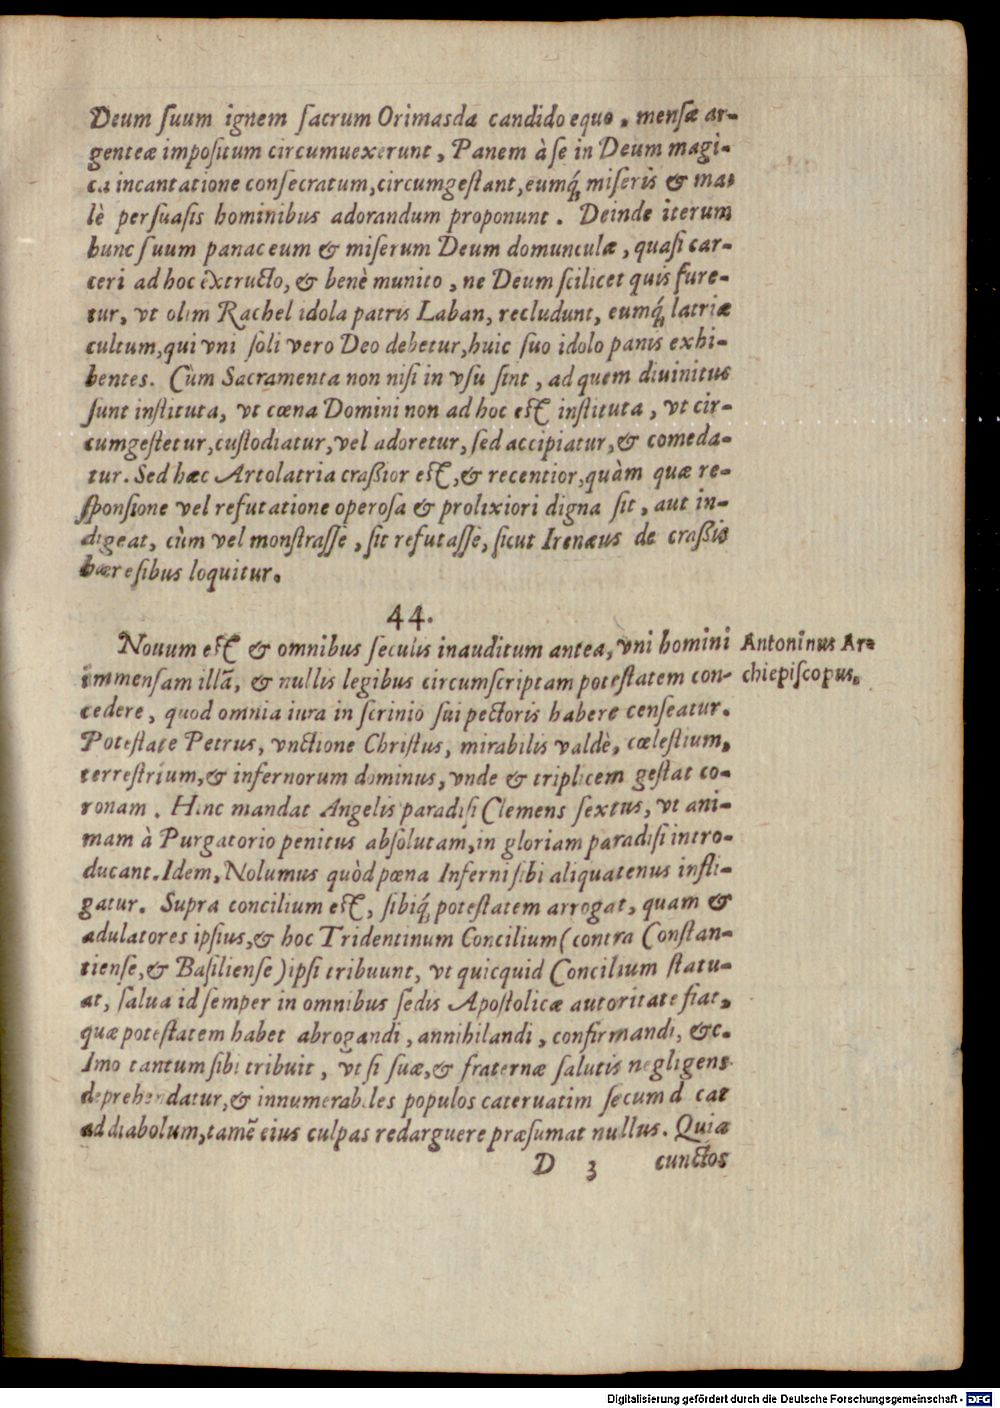 Deum ſuum ignem ſacrum Orimasda candido equo, menſæ ar-
genteæ impoſitum circumuexerunt, Panem à ſe in Deum magi-
ca incantatione conſecratum, circumgeſtant, eumq́; miſeris & ma-
lè perſuaſis hominibus adorandum proponunt. Deinde iterum
hunc ſuum panaceum & miſerum Deum domunculæ, quaſi car-
ceri ad hoc extructo, & benè munito, ne Deum ſcilicet quis fure-
tur, vt olim Rachel idola patris Laban, recludunt, eumq́; latriæ
cultum, qui vni ſoli vero Deo debetur, huic ſuo idolo panis exhi-
bentes. Cùm Sacramenta non niſi in vſu ſint, ad quem diuinitus
ſunt inſtituta, vt cœna Domini non ad hoc eſt inſtituta, vt cir-
cumgeſtetur, cuſtodiatur, vel adoretur, ſed accipiatur, & comeda-
tur. Sed hæc Artolatria craßior eſt, & recentior, quàm quæ re-
ſponſione vel refutatione operoſa & prolixiori digna ſit, aut in-
digeat, cùm vel monſtraſſe, ſit refutaſſe, ſicut Irenæus de craßis
hæreſibus loquitur.
44.
Nouum eſt & omnibus ſeculis inauditum antea, vni homini
immenſam illā, & nullis legibus circumſcriptam poteſtatem con-
cedere, quod omnia iura in ſcrinio ſui pectoris habere cenſeatur.
Poteſtate Petrus, vnctione Chriſtus, mirabilis valdè, cœleſtium,
terreſtrium, & infernorum dominus, vnde & triplicem geſtat co-
ronam. Hinc mandat Angelis paradiſi Clemens ſextus, vt ani-
mam à Purgatorio penitus abſolutam, in gloriam paradiſi intro-
ducant. Idem, Nolumus quòd pœna Inferni ſibi aliquatenus infli-
gatur. Supra concilium eſt, ſibiq́; poteſtatem arrogat, quam &
adulatores ipſius, & hoc Tridentinum Concilium (contra Conſtan-
tienſe, & Baſilienſe) ipſi tribuunt, vt quicquid Concilium ſtatu-
at, ſalua id ſemper in omnibus ſedis Apoſtolicæ autoritate fiat,
quæ poteſtatem habet abrogandi, annihilandi, confirmandi, &c.
Imo tantum ſibi tribuit, vt ſi ſuæ, & fraternæ ſalutis negligens
deprehendatur, & innumerabiles populos cateruatim ſecum d cat
ad diabolum, tamē eius culpas redarguere præſumat nullus. Quia
D 3 cunctos
Antoninus Ar-
chiepiſcopus.
Digitalisierung gefördert durch die Deutsche Forschungsgemeinschaft - DFG